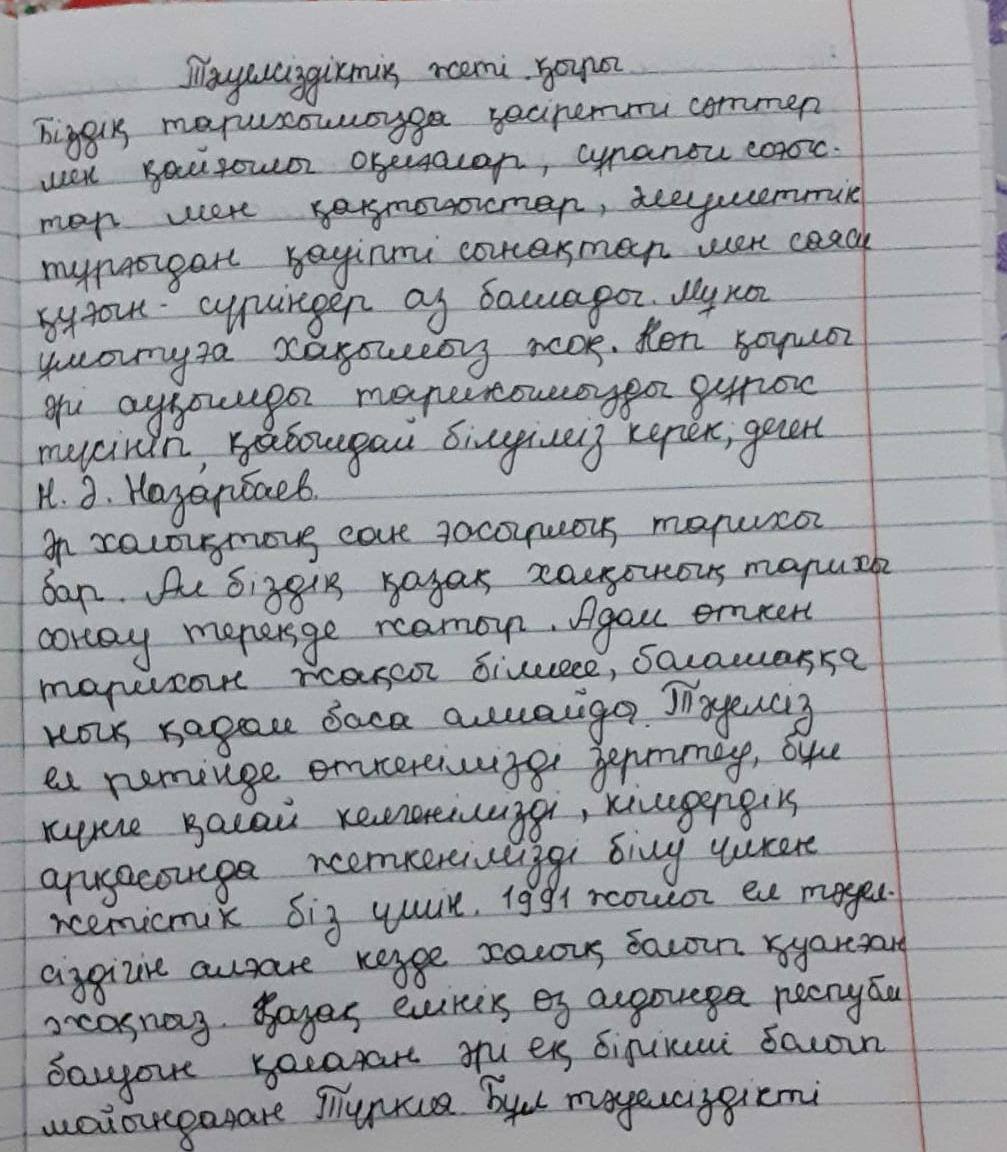 Тәуелсіздіктің жеті қыры
Біздің тарихымызда қасіретті сәттер
мен қайғылы оқиғалар, сұрапыл соғыс-
тар мен қақтығыстар, әлеуметтік
тұрғыдан қауіпті сынақтар мен саяси
қуғын-сүргіндер аз болмады. Мұны
ұмытуға хақымыз жоқ. Көп қырлы
әрі ауқымды тарихымызды дұрыс
түсініп, қабылдай білуіміз керек, деген
Н. Ә. Назарбаев.
Әр халықтың сан ғасырлық тарихы
бар. Ал біздің қазақ халқының тарихы
сонау тереңде жатыр. Адам өткен
тарихын жақсы білмесе, болашаққа
нық қадам баса алмайды. Тәуелсіз
ел ретінде өткенімізді зерттеу, бұл
күнге қалай келгенімізді, кімдердің
арқасында жеткенімізді білу үлкен
жетістік біз үшін. 1991 жылы ел тәуел-
сіздігін алған кезде халық болып қуанған
жақпаз. Қазақ елінің өз алдында республи
болуын қалаған әрі ең бірінші болып
мойындаған Түркия. Бұл тәуелсіздікті